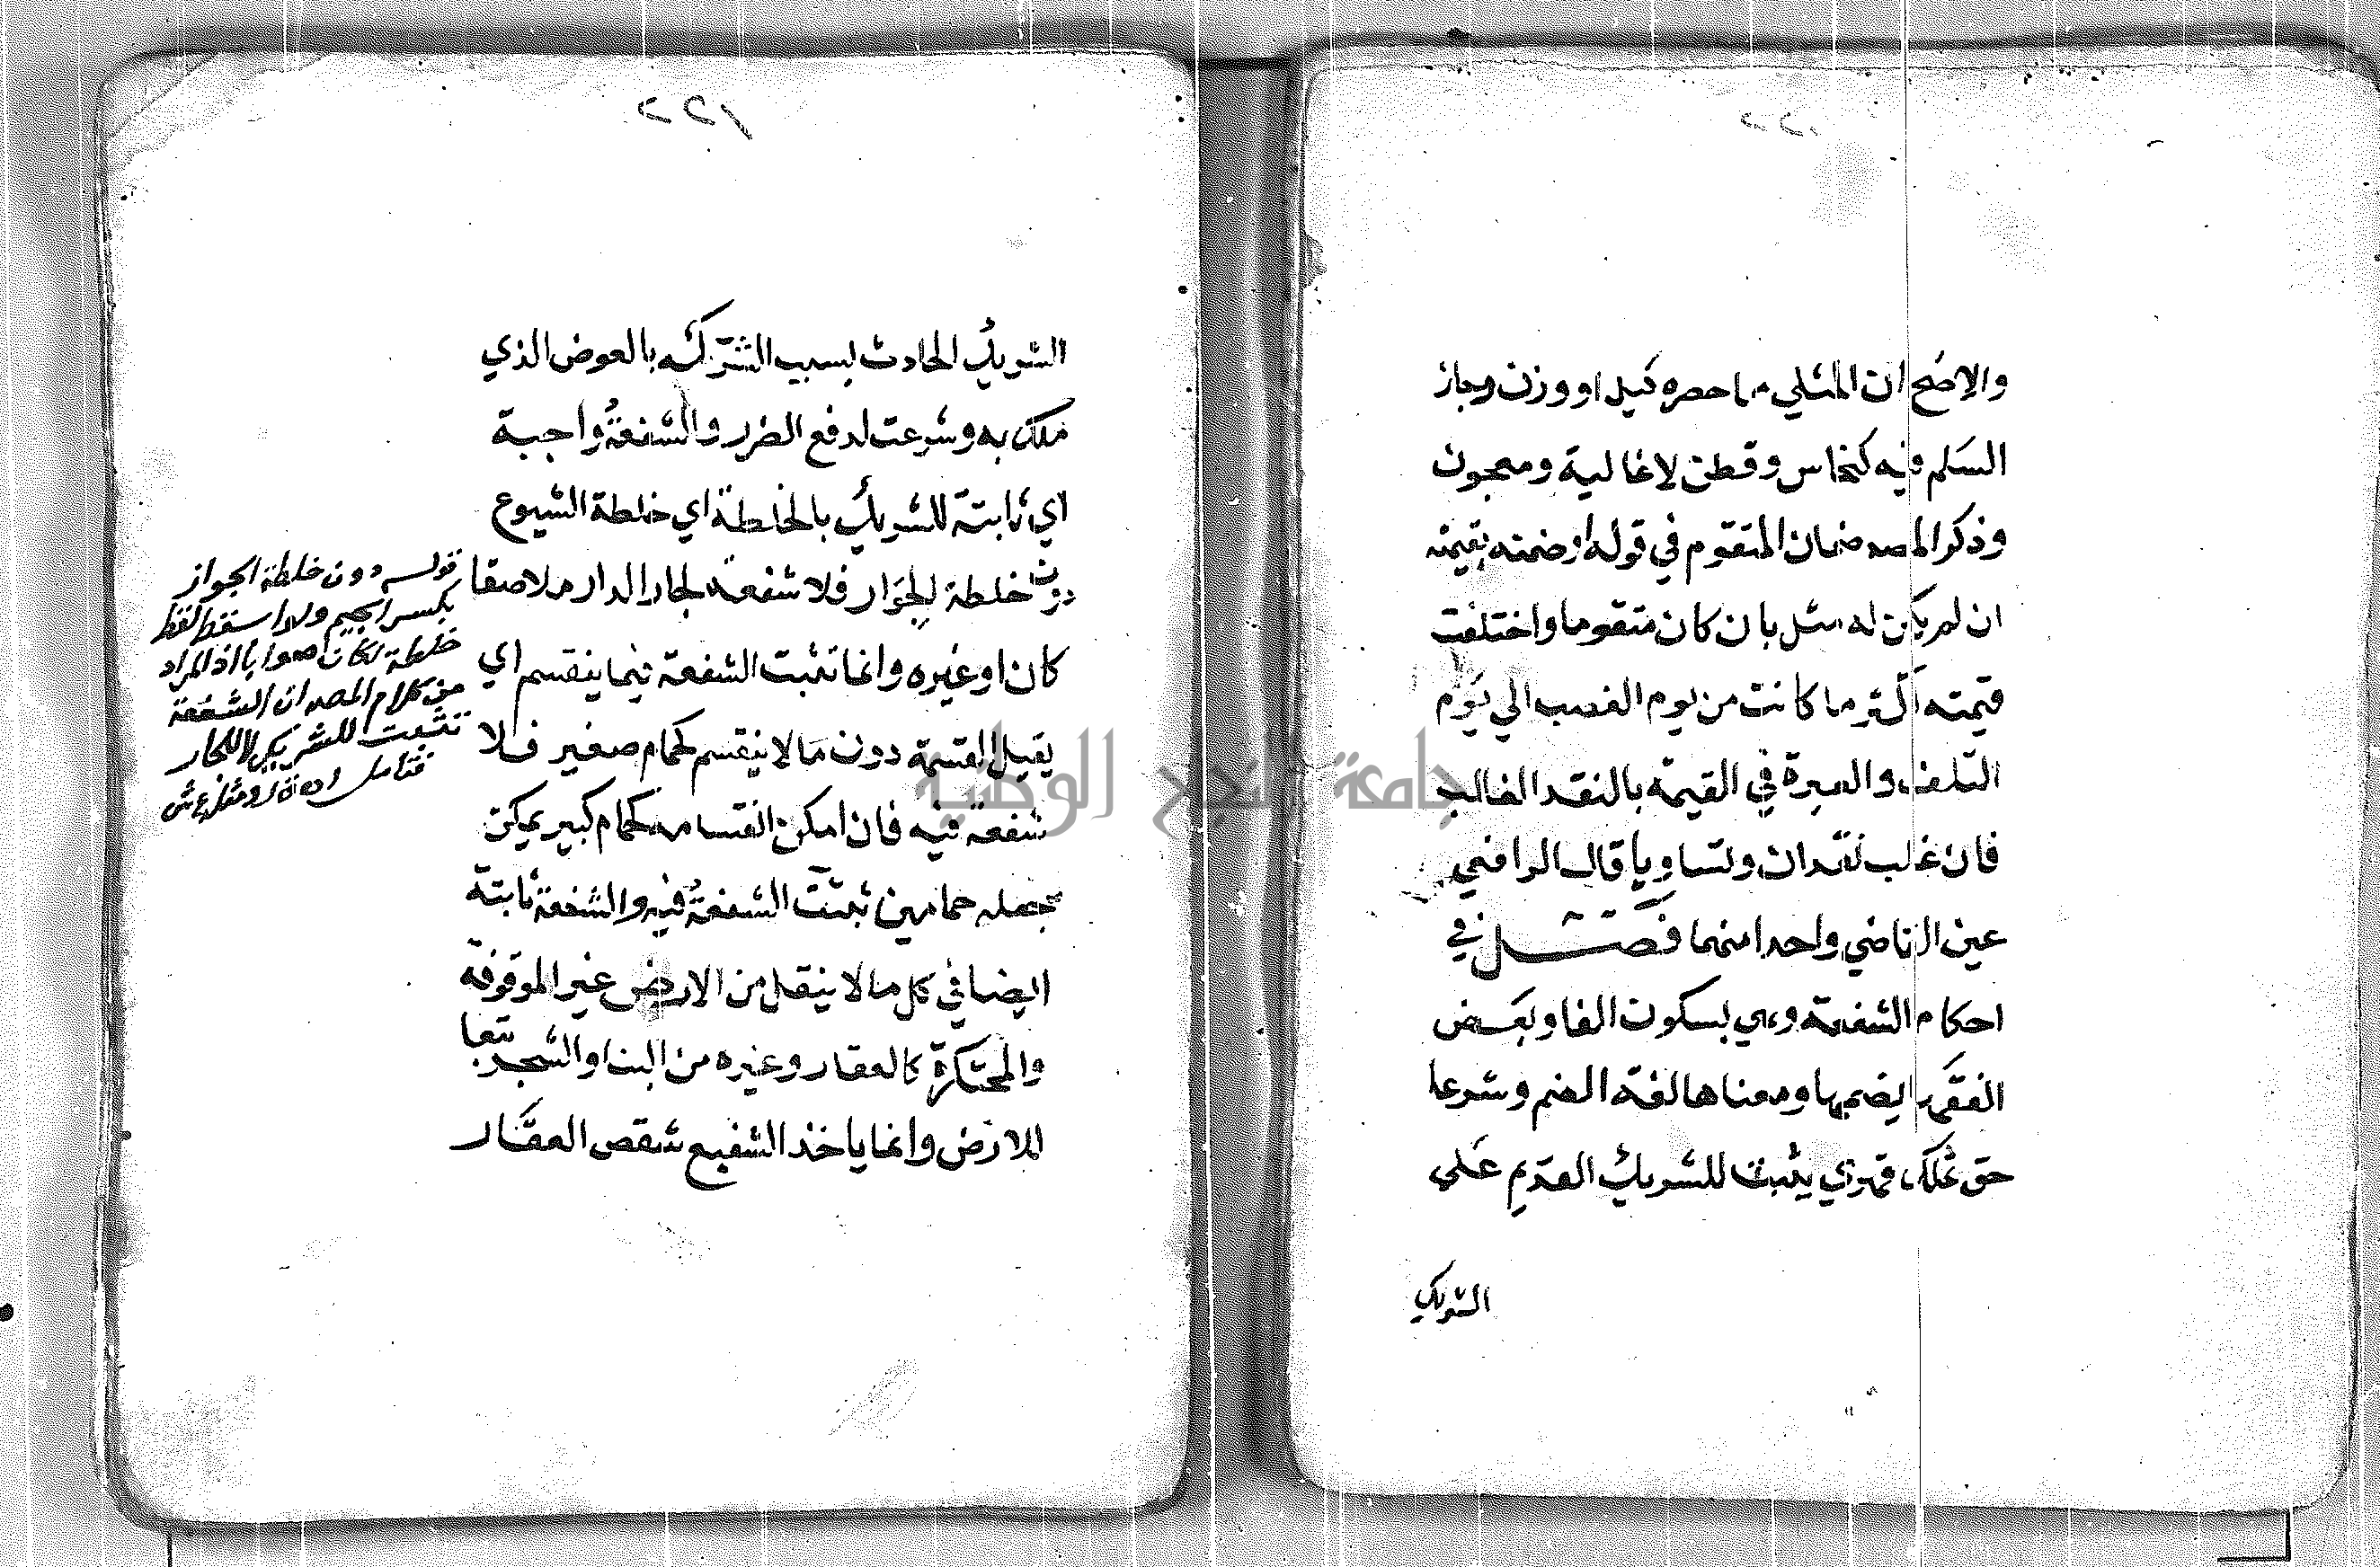 والاصح ان المثلي ما حصره كيل او وزن وجاز
السلم فيه كنحاس وقطن لا غالية ومعجون
وذكر المصـ ضمان المتقوم في قوله او ضمنه بقيمته
ان لم يكن له مثل بان كان متقوما واختلفت
قيمته اكثر ما كانت من يوم الغصب الي يوم
التلف والعبرة في القيمة بالنقد الغالب
فان غلب نقدان وتساويا قال الرافعي
عين القاضي واحدا منهما فصــل في
احكام الشفعة وهي بسكون الفا وبعض
الفقها يضمها ومعناها لغة الضم وشرعا
حق تملك قهري يثبت للشريك القديم على
الشريك
الشريك الحادث بسبب الشركه بالعوض الذي
ملك به وشرعت لدفع الضرر والشفعة واجبة
اي ثابتة للشريك بالخلطة اي خلطة الشيوع
دون خلطة الجوار فلا شفعة لجار الدار ملاصقا
كان او غيره وانما تثبت الشفعة فيما ينقسم اي
يقبل القسمة دون ما لا ينقسم كحمام صغير فلا
شفعة فيه فان امكن انقسامه كحمام كبير يمكن
جعله حمامين ثبتت الشفعة فيه والشفعة ثابتة
ايضا في كل ما لا ينقل من الارض غير الموقوفة
والمحتكرة كالعقار وغيره من البنا والشجر تبعا
للارض وانما ياخذ الشفيع شقص العقار
قوله دون خلطة الجوار
بكسر الجيم ولو اسقط لفظ
خلطة لكان صوابا اذ المراد
من كلام المصـ ان الشفعة
تثبت للشريك لا للجار
فتامل
جامعة النجاح الوطنية